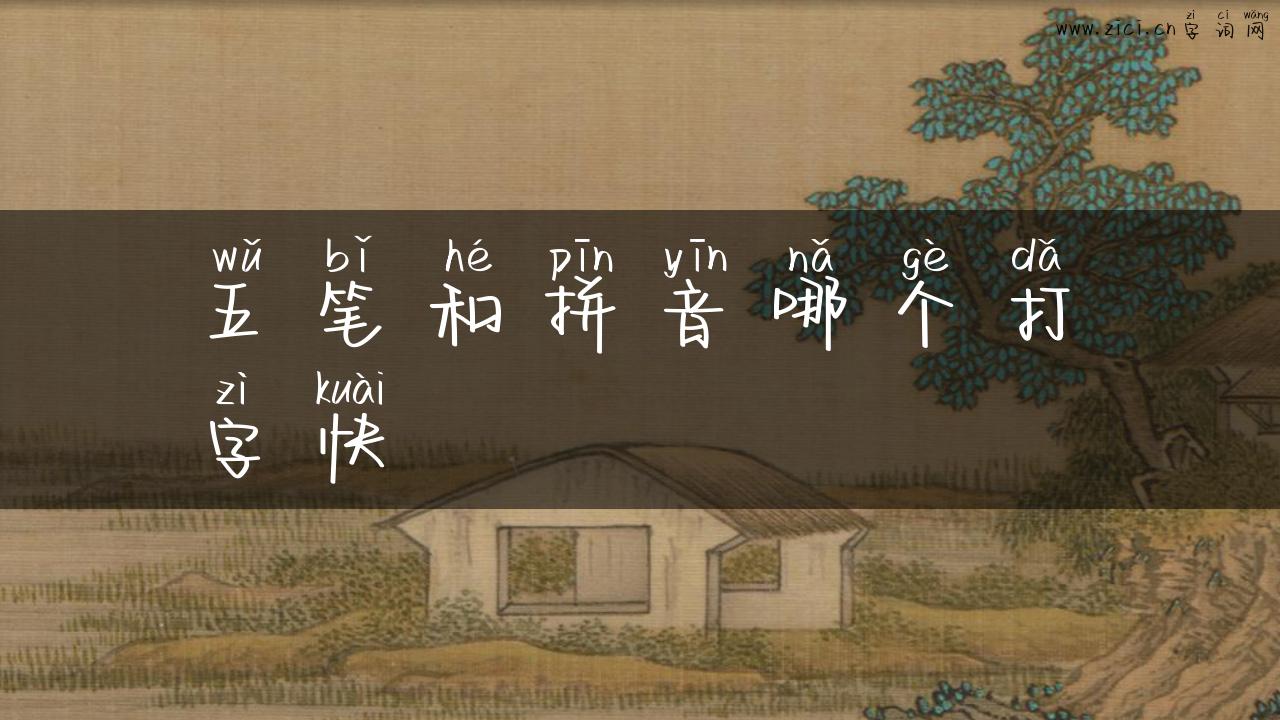 zì cí wǎng
www.zici.cn 字词网
wǔ bǐ hé pīn yīn nǎ gè dǎ
五笔和拼音哪个打
zì kuài
字快